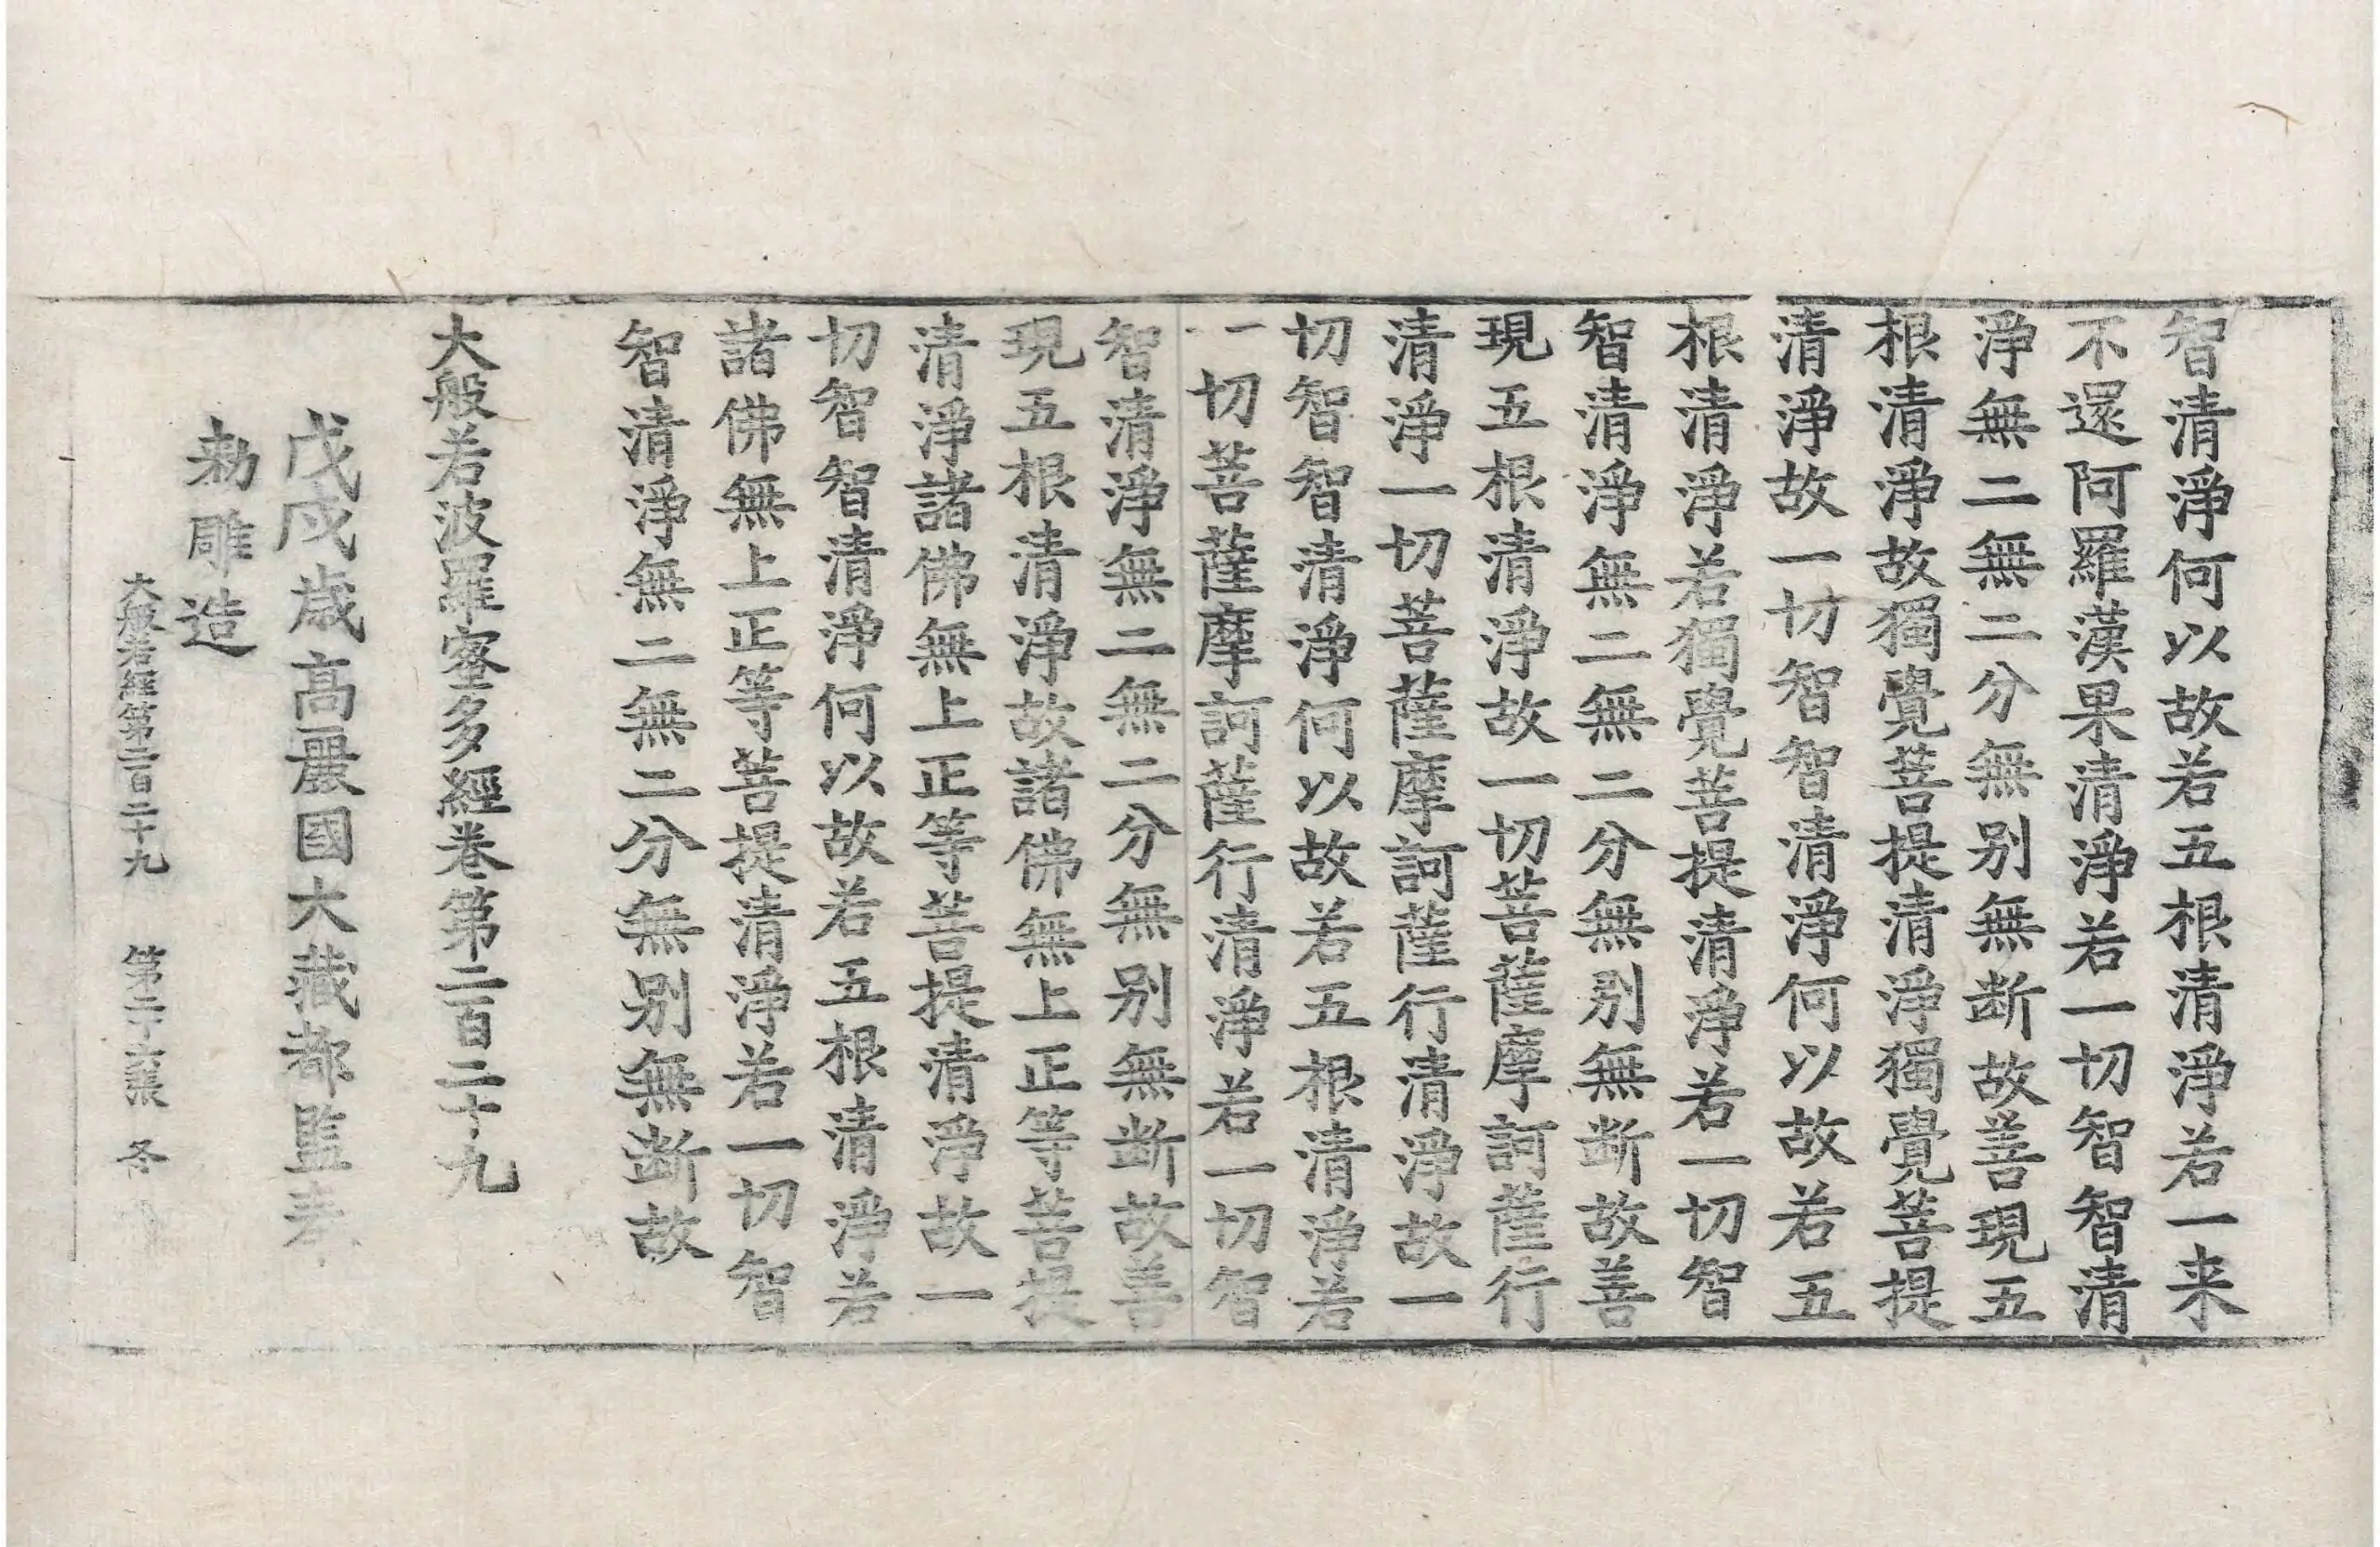 智清淨何以故若五根清淨若一来
不還阿羅漢果清淨若一切智智清
淨無二無二分無别無断故善現五
根清淨故獨覺菩提清淨獨覺菩提
清淨故一切智智清淨何以故若五
根清淨若獨覺菩提清淨若一切智
智清淨無二無二分無别無断故善
現五根清淨故一切菩薩摩訶薩行
清淨一切菩薩摩訶薩行清淨故一
切智智清淨何以故若五根清淨若
一切菩薩摩訶薩行清淨若一切智
智清淨無二無二分無别無断故善
現五根清淨故諸佛無上正等菩提
清淨諸佛無上正等菩提清淨故一
切智智清淨何以故若五根清淨若
諸佛無上正等菩提清淨若一切智
智清淨無二無二分無别無断故
大般若波羅蜜多經卷第二百二十九
戊戌歳高麗國大藏都監奉
勑雕造
大般若經第二百二十九 第二十六張 冬